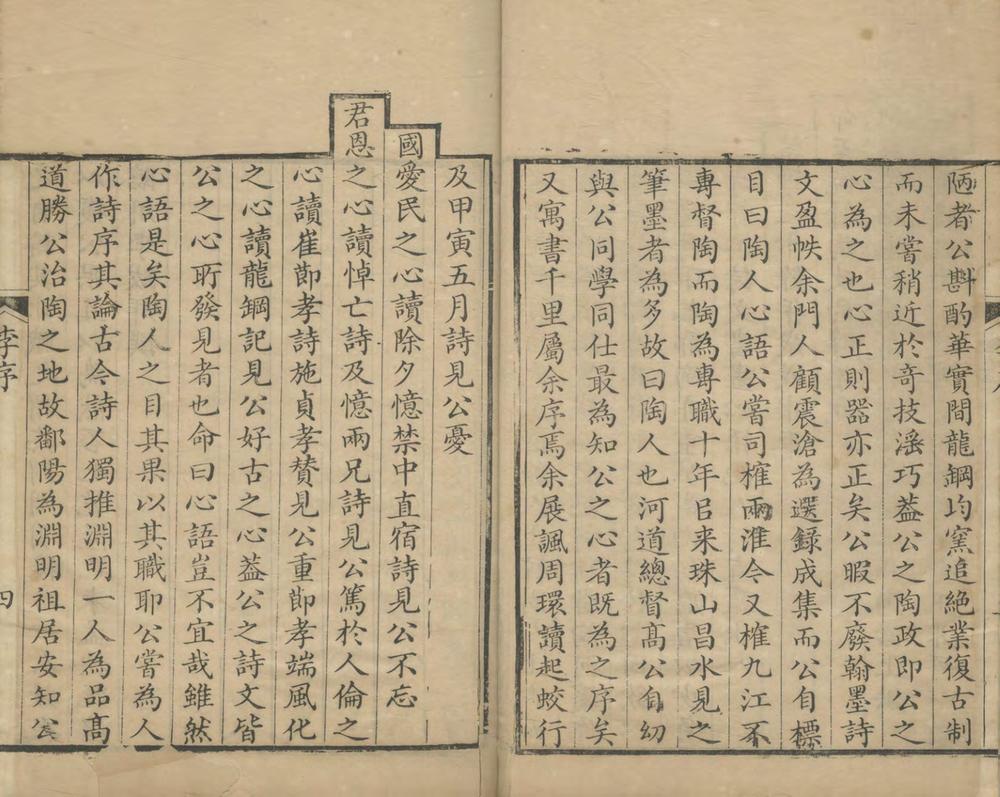 陋者公斟酌華實間龍鋼均窯追絶業復古制
而未嘗稍近於奇技滛巧葢公之陶政即公之
心為之也心正則器亦正矣公暇不廢翰墨詩
文盈帙余門人顧震滄為選録成集而公自標
目曰陶人心語公嘗司榷兩淮今又榷九江不
專督陶而陶為專職十年㠯来珠山昌水見之
筆墨者為多故曰陶人也河道總督髙公自幼
與公同學同仕最為知公之心者既為之序矣
又寓書千里屬余序焉余展諷周環讀起蛟行
及甲寅五月詩見公憂
國愛民之心讀除夕憶禁中直宿詩見公不忘
君恩之心讀悼亡詩及憶兩兄詩見公篤於人倫之
心讀崔節孝詩施貞孝贊見公重節孝端風化
之心讀龍鋼記見公好古之心葢公之詩文皆
公之心所發見者也命曰心語豈不宜哉雖然
心語是矣陶人之目其果以其職耶公嘗為人
作詩序其論古今詩人獨推淵明一人為品髙
道勝公治陶之地故鄱陽為淵明祖居安知公
李序
四